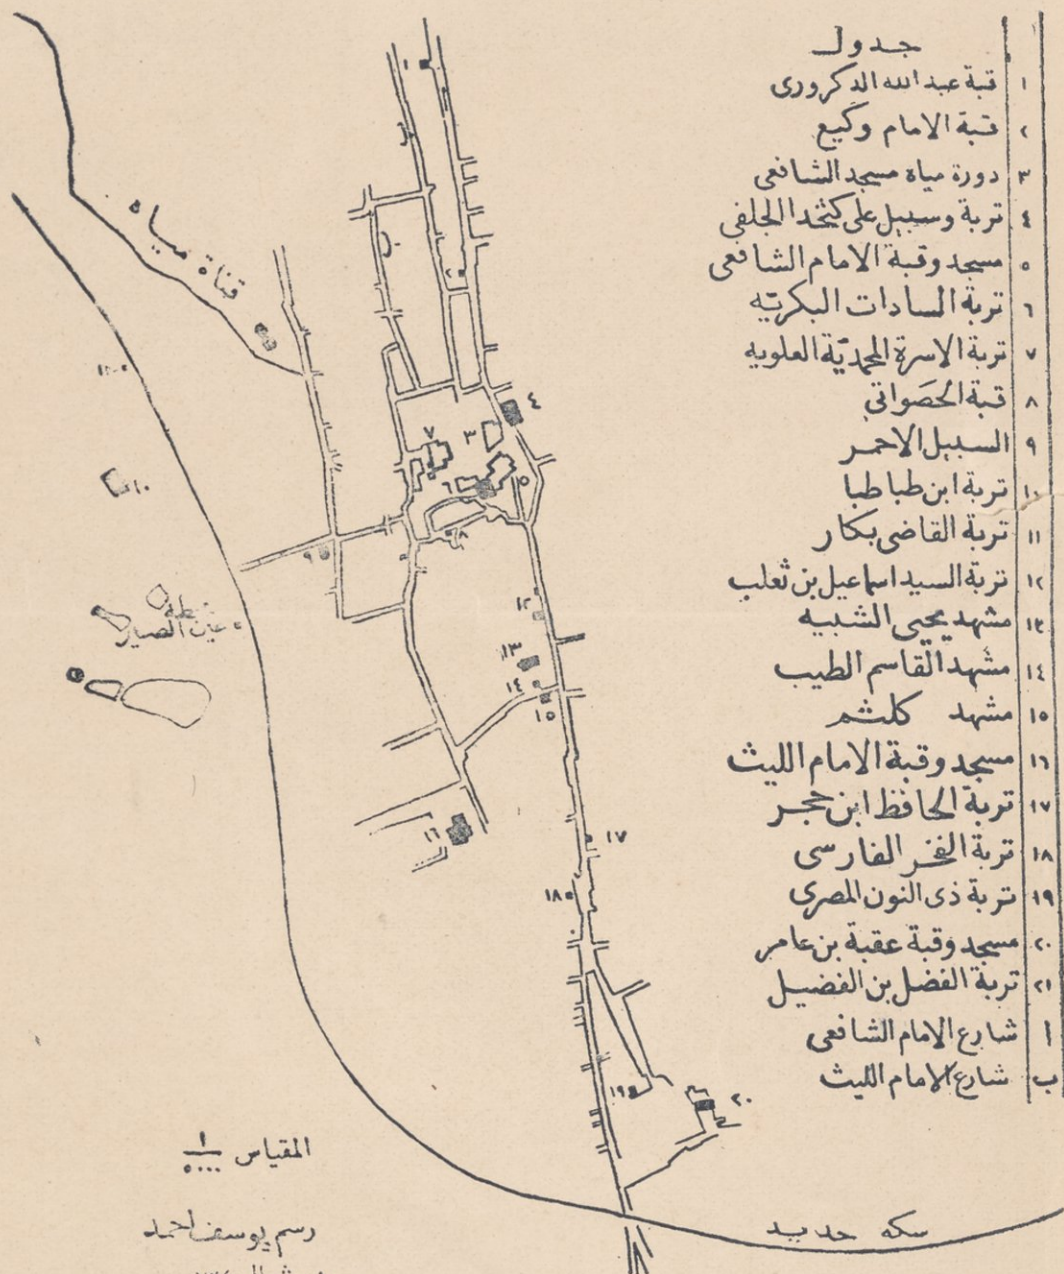 جدول
١ قبة عبد الله الدكرورى
٢ قبة الامام وكيع
٣ دورة مياه مسجد الشافعى
٤ تربة وسبيل على كتخدا الجلفى
٥ مسجد وقبة الامام الشافعى
٦ تربة السادات البكريّه
٧ تربة الاسرة المحمديّة العلويه
٨ قبة الحصواتى
٩ السبيل الاحمر
١٠ تربة ابن طباطبا
١١ تربة القاضى بكار
١٢ تربة السيد اسماعيل بن ثعلب
١٣ مشهد يحيى الشبيه
١٤ مشهد القاسم الطيب
١٥ مشهد كلثم
١٦ مسجد وقبة الامام الليث
١٧ تربة الحافظ ابن حجر
١٨ تربة الفخر الفارسى
١٩ تربة ذى النون المصرى
٢٠ مسجد وقبة عقبة بن عامر
٢١ تربة الفضل بن الفضيل
أ شارع الامام الشافعى
ب شارع الامام الليث
قناة مياه
١
أ
ب
٢
٤
٣
٧
٥
٦
١٠
٨
٩
عين الصير
١٢
١٣
١٤
١٥
١٦
١٧
١٨
١٩
٢٠
المقياس ١/٥٠٠٠
سكه حديد
رسم يوسف احمد